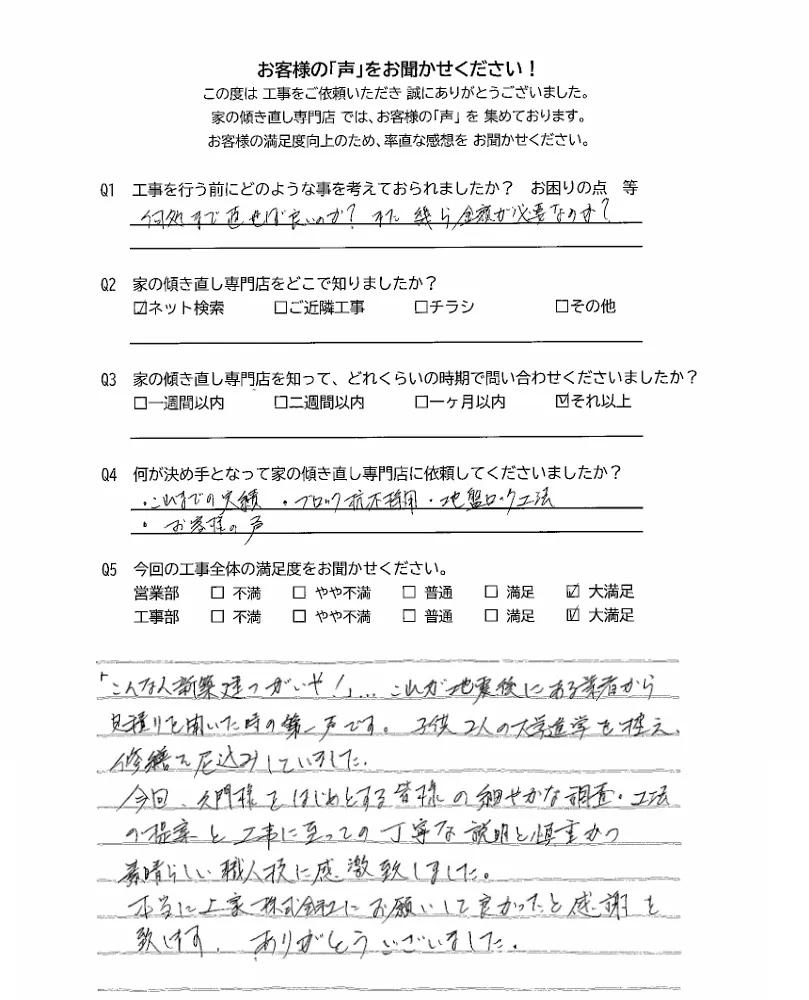 お客様の「声」をお聞かせください！
この度は 工事をご依頼いただき 誠にありがとうございました。
家の傾き直し専門店 では、お客様の「声」 を 集めております。
お客様の満足度向上のため、率直な感想を お聞かせください。
Q1 工事を行う前にどのような事を考えておられましたか？ お困りの点 等
何処まで直せば良いのか？ また 幾ら金額が必要なのか？
Q2 家の傾き直し専門店をどこで知りましたか？
☑ネット検索 □ご近隣工事 □チラシ □その他
Q3 家の傾き直し専門店を知って、どれくらいの時期で問い合わせくださいましたか？
□一週間以内 □二週間以内 □一ヶ月以内 ☑それ以上
Q4 何が決め手となって家の傾き直し専門店に依頼してくださいましたか？
・これまでの実績 ・ブロック杭不採用 ・地盤ロック工法
・お客様の声
Q5 今回の工事全体の満足度をお聞かせください。
営業部 □ 不満 □ やや不満 □ 普通 □ 満足 ☑ 大満足
工事部 □ 不満 □ やや不満 □ 普通 □ 満足 ☑ 大満足
「こんなん新築建つがいや！」… これが地震後にある業者から
見積りを聞いた時の第一声です。子供2人の大学進学を控え、
修繕を尻込みしていました。
今回、久門様をはじめとする皆様の細やかな調査・工法
の提案と工事に至っての丁寧な説明と慎重かつ
素晴らしい職人技に感激致しました。
本当に上家株式会社にお願いして良かったと感謝を
致します。ありがとうございました。